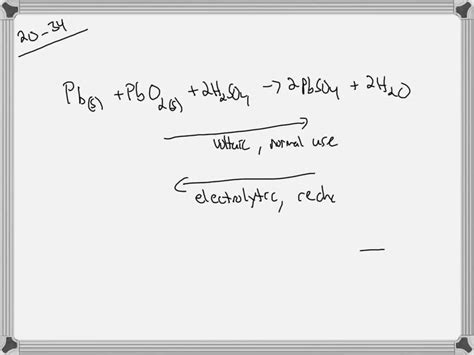 20-34
Pb(s) + PbO2(s) + 2H2SO4 → 2PbSO4 + 2H2O
voltaic, normal use
electrolytic, rechr